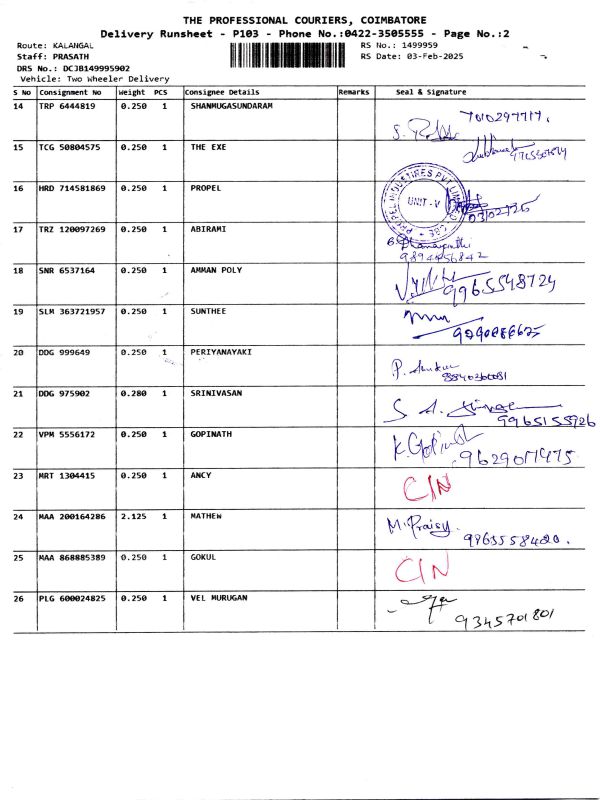 THE PROFESSIONAL COURIERS, COIMBATORE
Delivery Runsheet - P103 - Phone No.:0422-3505555 - Page No.:2
Route: KALANGAL RS No.: 1499959
Staff: PRASATH RS Date: 03-Feb-2025
DRS No.: DCJB149995902
Vehicle: Two Wheeler Delivery
S No Consignment No Weight PCS Consignee Details Remarks Seal & Signature
14 TRP 6444819 0.250 1 SHANMUGASUNDARAM
7010297717.
15 TCG 50804575 0.250 1 THE EXE
16 HRD 714581869 0.250 1 PROPEL
PROPEL INDUSTRIES PVT LIMITED
UNIT - V
CBE
03/02/25
17 TRZ 120097269 0.250 1 ABIRAMI
9894456842
18 SNR 6537164 0.250 1 AMMAN POLY
9965548724
19 SLM 363721957 0.250 1 SUNTHEE
20 DDG 999649 0.250 1 PERIYANAYAKI
21 DDG 975902 0.280 1 SRINIVASAN
9965155926
22 VPM 5556172 0.250 1 GOPINATH
K. Gopinath
9629017475
23 MRT 1304415 0.250 1 ANCY
C/N
24 MAA 200164286 2.125 1 MATHEW
M. Praisy.
9965558420.
25 MAA 868885389 0.250 1 GOKUL
C/N
26 PLG 600024825 0.250 1 VEL MURUGAN
9345701801